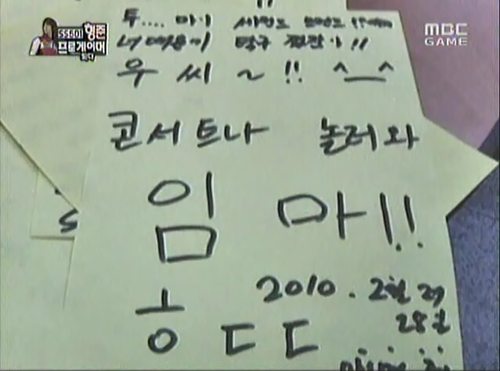 SS501 형준
프로게이머 되다
MBC
GAME
투.... 마이 세컨드
너 때문이 탁구 !!
우 씨 ~ !! ^_^
콘서트나 놀러와
임 마!!
흥 ㄷㄷ
2010. 2월 27
28일